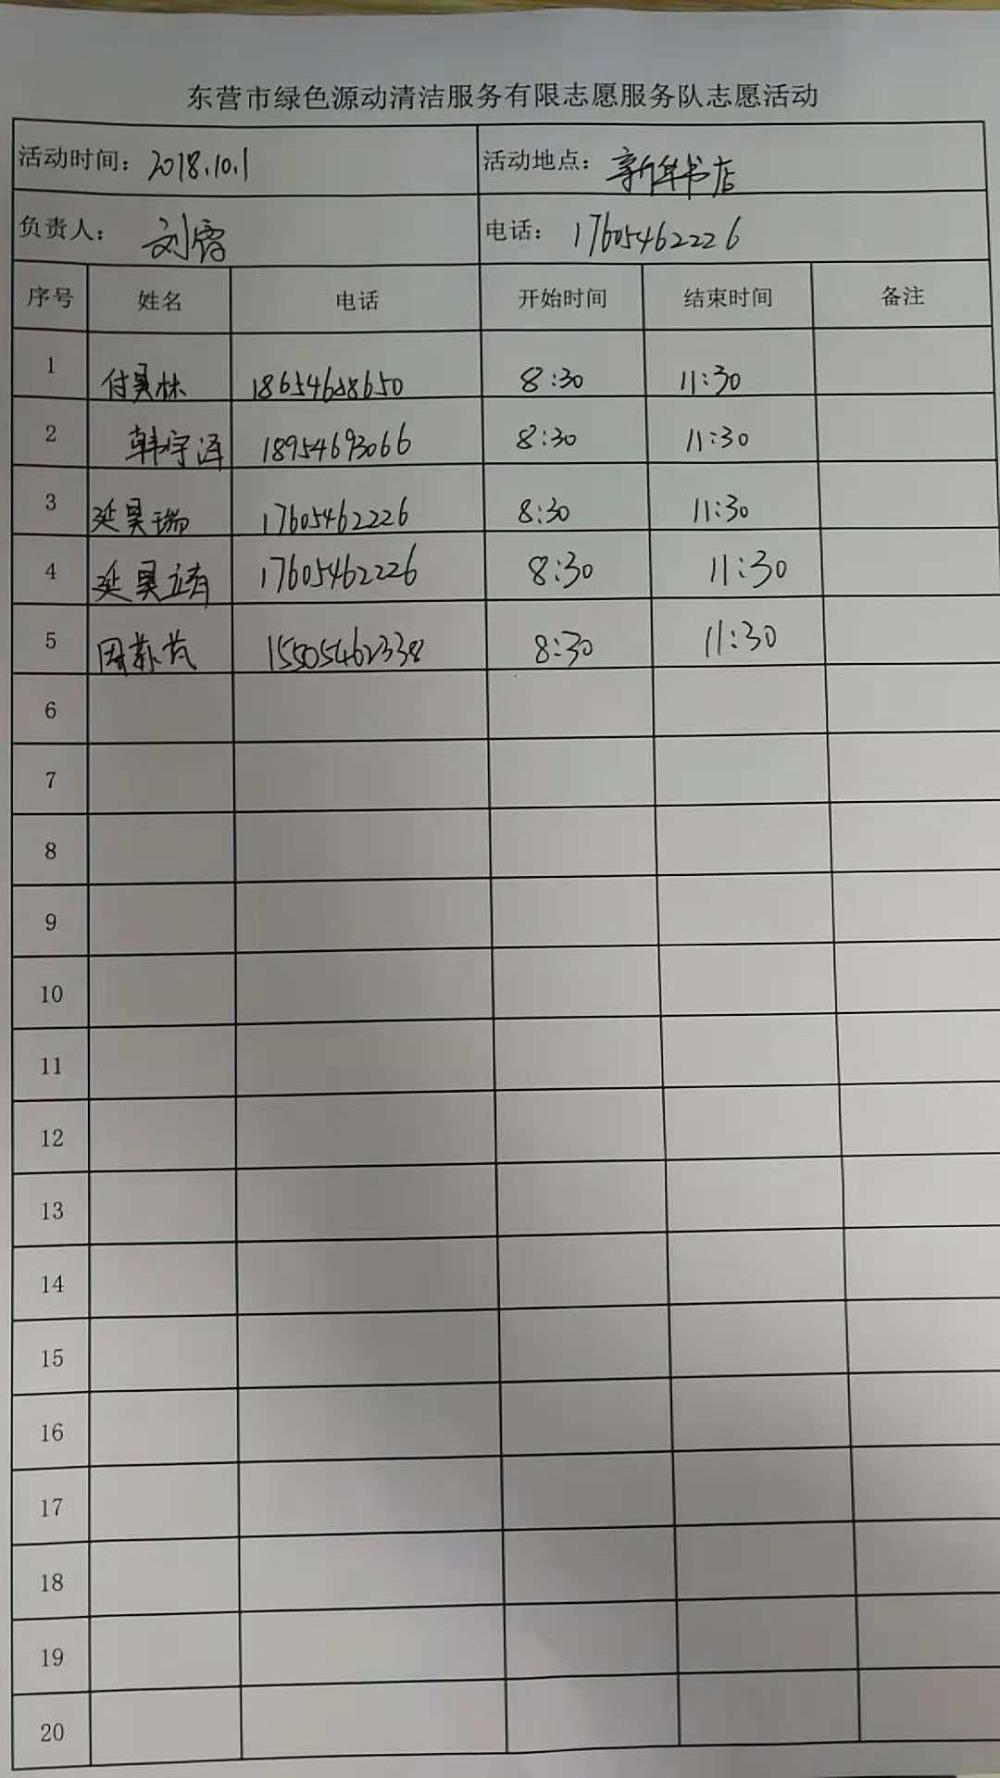 东营市绿色源动清洁服务有限志愿服务队志愿活动
活动时间: 2018.10.1 活动地点: 新华书店
负责人: 刘 电话: 17605462226
序号 姓名 电话 开始时间 结束时间 备注
1 付昊林 18654688650 8:30 11:30
2 韩宇泽 18954693066 8:30 11:30
3 延昊瑞 17605462226 8:30 11:30
4 延昊靖 17605462226 8:30 11:30
5 15505462338 8:30 11:30
6
7
8
9
10
11
12
13
14
15
16
17
18
19
20